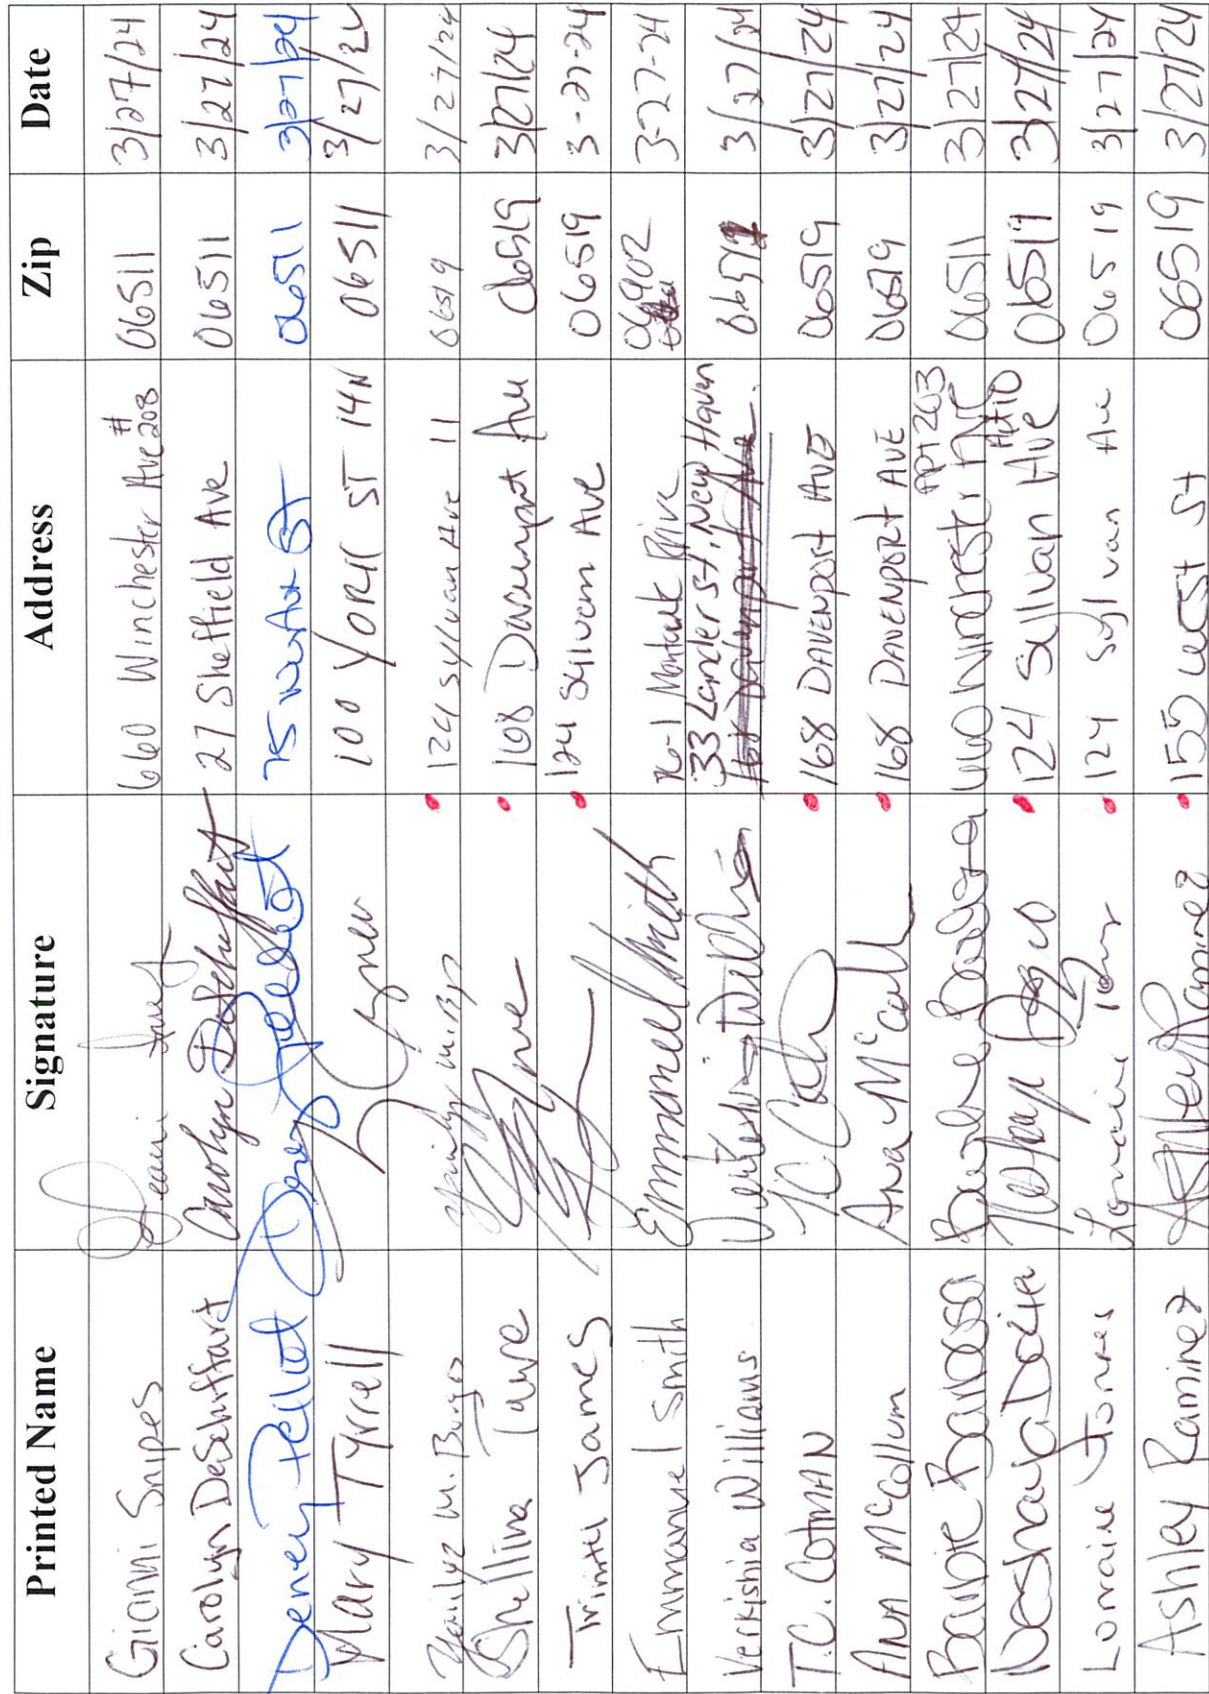 Printed Name Signature Address Zip Date
Gianni Snipes 660 Winchester Ave #208 06511 3/27/24
Carolyn DeSchiffart Carolyn 27 Sheffield Ave 06511 3/27/24
06511 3/27/24
Mary Tyrrell 100 YORK ST 14N 06511 3/27/24
M. Burgos 124 Sylvan Ave 11 06519 3/27/24
Shellina 168 Davenport Ave 06519 3/27/24
James 124 Sylvan Ave 06519 3-27-24
Emmanuel Smith Emmanuel Smith Drive 06902 3-27-24
Verkishia Williams 33 Lander St, New Haven 3/27/24
T.C. COTMAN T.C. 168 DAVENPORT AVE 06519 3/27/24
Ana McCollum Ana McCall 168 DAVENPORT AVE 06519 3/27/24
Barbie Barbie 660 Winchester Ave APT 203 06511 3/27/24
124 Sullivan Ave 06519 3/27/24
Lorraine Jones Lorraine 124 Sylvan Ave 06519 3/27/24
Ashley Ramirez Ashley Ramirez 155 West St 06519 3/27/24